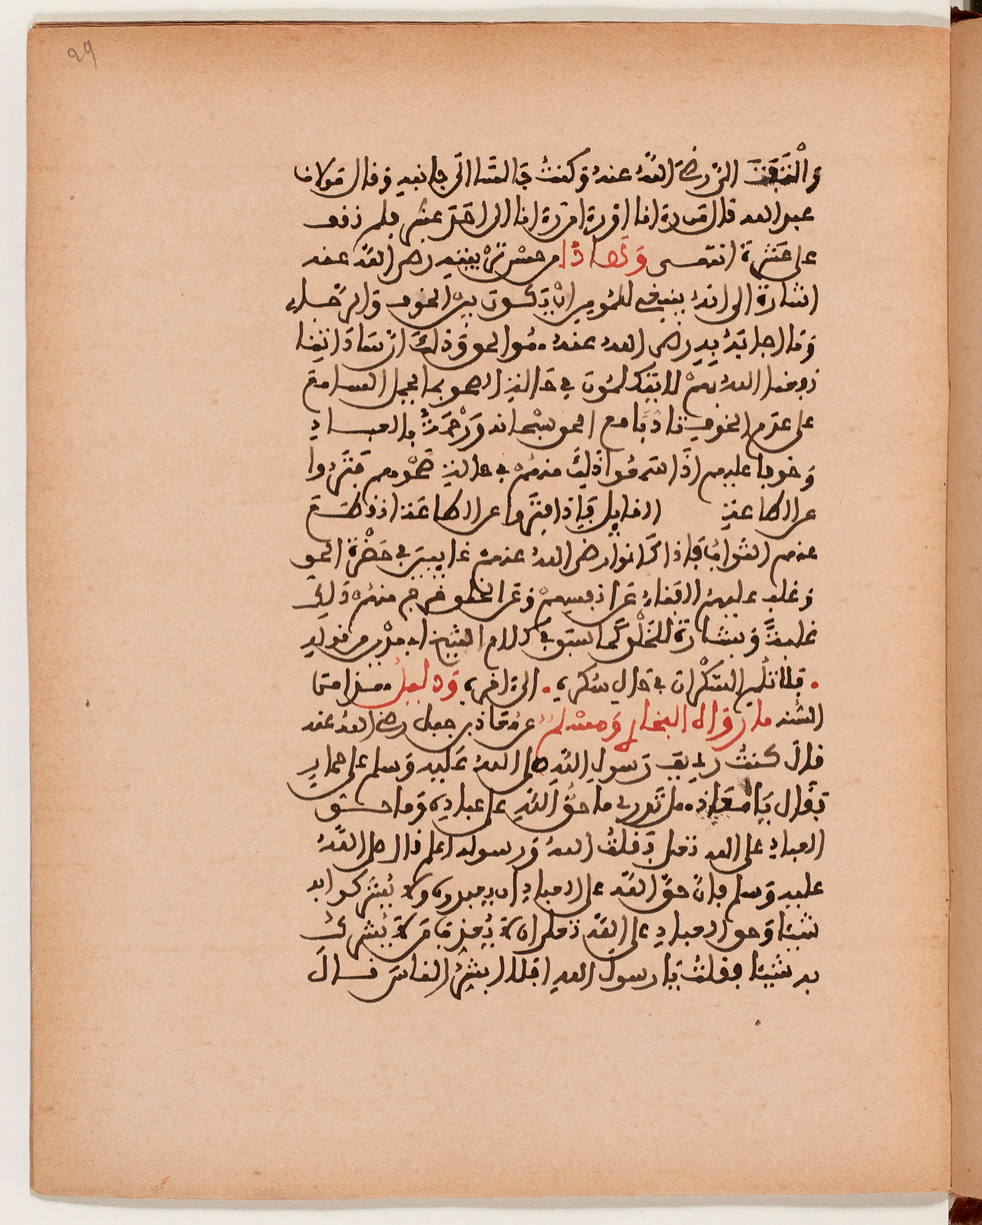 29
والتفت الي رضي الله عنه وكنت جالسا الى جانبه وقال مولاي
عبد الله قال
على عشرة انتهى ولهاذا من حسن تربيته رضي الله عنه
اشارة الى انه ينبغي للمومن ان يكون بين الخوف والرجاء
وما اجابه به رضي الله عنه هو الحق وذلك ان ساداتنا
نفعنا الله بهم لا يتكلمون في حالة الصحو بما يحمل السامع
على عدم الخوف تادبا مع الحق سبحانه ورحمة بالعباد
وخوفا عليهم اذا سمعوا ذلك منهم في حالة صحوهم فتروا
عن الطاعة فاذا فتروا عن الطاعة انقطع
عنهم الثواب فاذا كانوا رضي الله عنهم غايبين في حضرة الحق
وغلب عليهم الفناء عن انفسهم وعن الخلق خرج منهم ذلك
غلبة وبشارة للخلق كما سبق في كلام الشيخ ابي مدين من قوله
فلا تلم السكران في حال سكره الى اخره ودليل هذا من
السنة ما رواه البخاري ومسلم عن معاذ بن جبل رضي الله عنه
قال كنت رديف رسول الله صلى الله عليه وسلم على حمار
فقال يا معاذ هل تدري ما حق الله على عباده وما حق
العباد على الله تعلى فقلت الله ورسوله اعلم قال صلى الله
عليه وسلم فان حق الله على العباد ان يعبدوه ولا يشركوا به
شيئا وحق العباد على الله تعلى ان لا يعذب من لا يشرك
به شيئا فقلت يا رسول الله افلا ابشر الناس قال